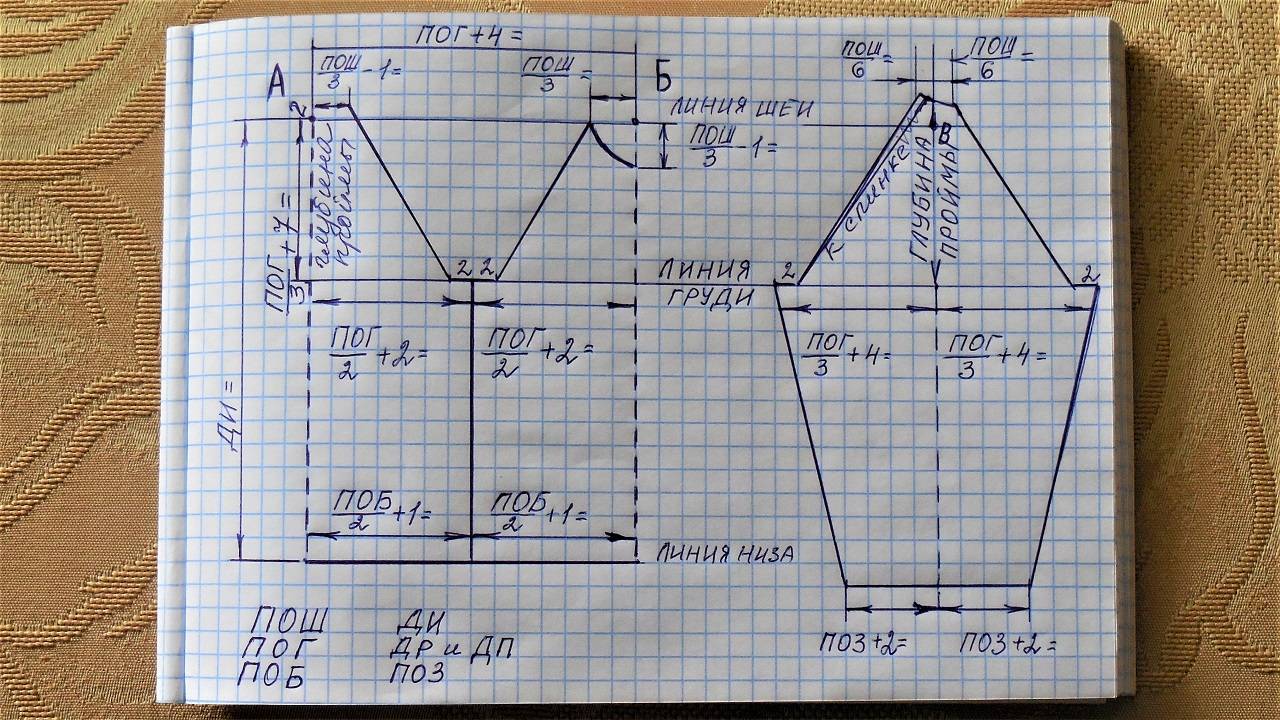 ПОГ+4=
А
ПОШ/3 -1=
ПОШ/3 =
Б
2
ЛИНИЯ ШЕИ
ПОШ/3 -1=
ПОГ/3 +7=
глубина
проймы
ДИ=
2 2
ЛИНИЯ
ГРУДИ
ПОГ/2 +2=
ПОГ/2 +2=
ПОБ/2 +1=
ПОБ/2 +1=
ЛИНИЯ НИЗА
ПОШ/6 =
ПОШ/6 =
В
к спинке
ГЛУБИНА
ПРОЙМЫ
2
2
ПОГ/3 +4=
ПОГ/3 +4=
ПОЗ+2=
ПОЗ+2=
ПОШ ДИ
ПОГ ДР и ДП
ПОБ ПОЗ